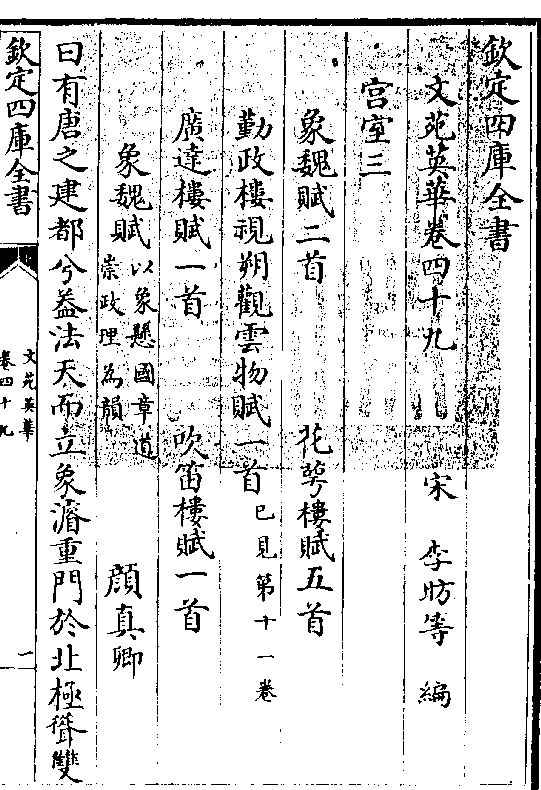 欽定四庫全書
文苑英華卷四十九 宋 李昉等 編
宮室三
象魏賦二首 花萼樓賦五首
勤政樓視朔觀雲物賦一首 已見第十一卷
廣達樓賦一首 吹笛樓賦一首
象魏賦 以象懸國章道崇政理為韻 顏真卿
曰有唐之建都兮益法天而立象濬重門於北極聳雙
欽定四庫全書
文苑英華
卷四十九
一